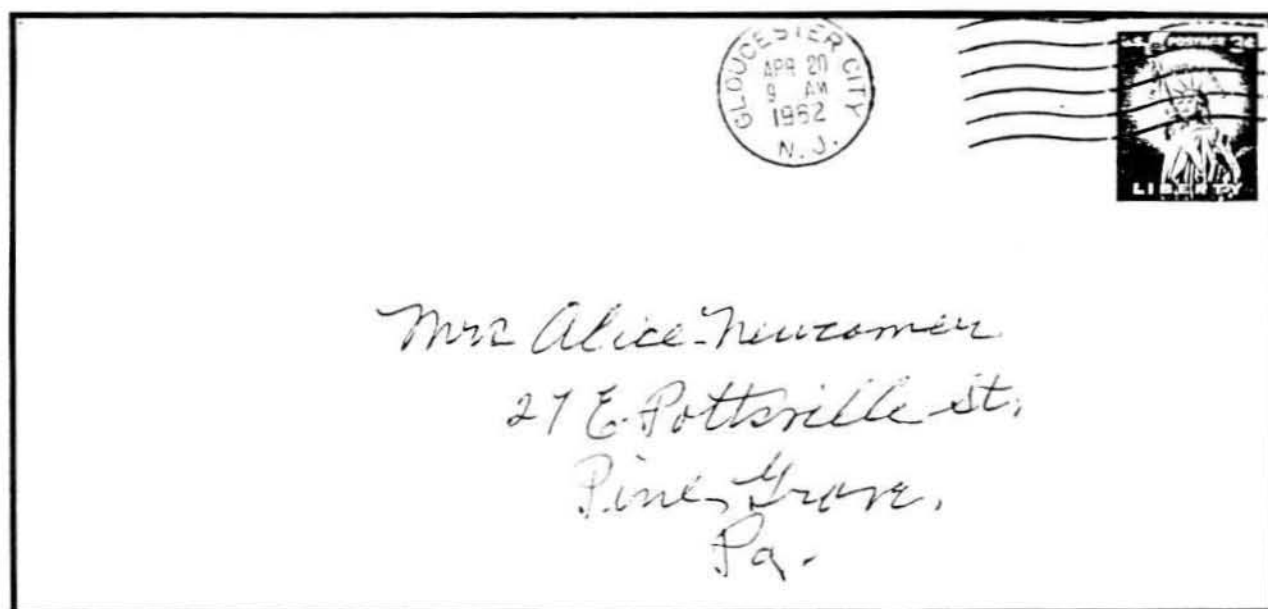 GLOUCESTER CITY
APR 20
9 AM
1962
N. J.
U.S. POSTAGE 3¢
LIBERTY
Mrs Alice Newcomer
27 E. Pottsville St.
Pine Grove,
Pa.